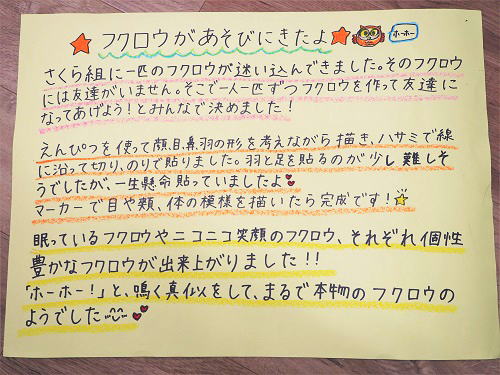 フクロウがあそびにきたよ
ホーホー
さくら組に一匹のフクロウが迷い込んできました。そのフクロウ
には友達がいません。そこで一人一匹ずつフクロウを作って友達に
なってあげよう！とみんなで決めました！
えんぴつを使って顔、目、鼻、羽の形を考えながら描き、ハサミで線
に沿って切り、のりで貼りました。羽と足を貼るのが少し難しそ
うでしたが、一生懸命貼っていましたよ
マーカーで目や頬、体の模様を描いたら完成です！
眠っているフクロウやニコニコ笑顔のフクロウ、それぞれ個性
豊かなフクロウが出来上がりました！！
「ホーホー！」と、鳴く真似をして、まるで本物のフクロウの
ようでした